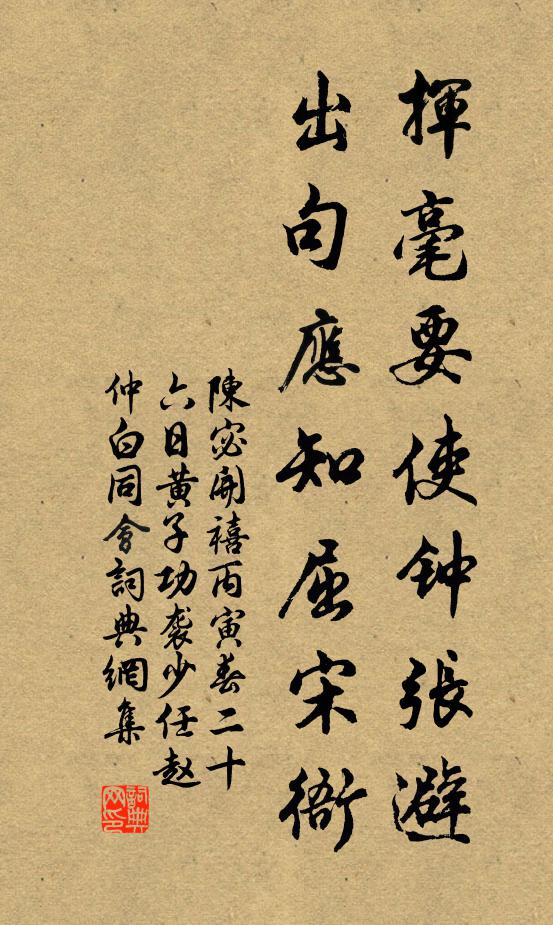 揮毫要使钟張避
出句應知屈宋衙
陳宓開禧丙寅春二十
六日黄子功袭少任赵
仲白同會詞典網集
詞典网印